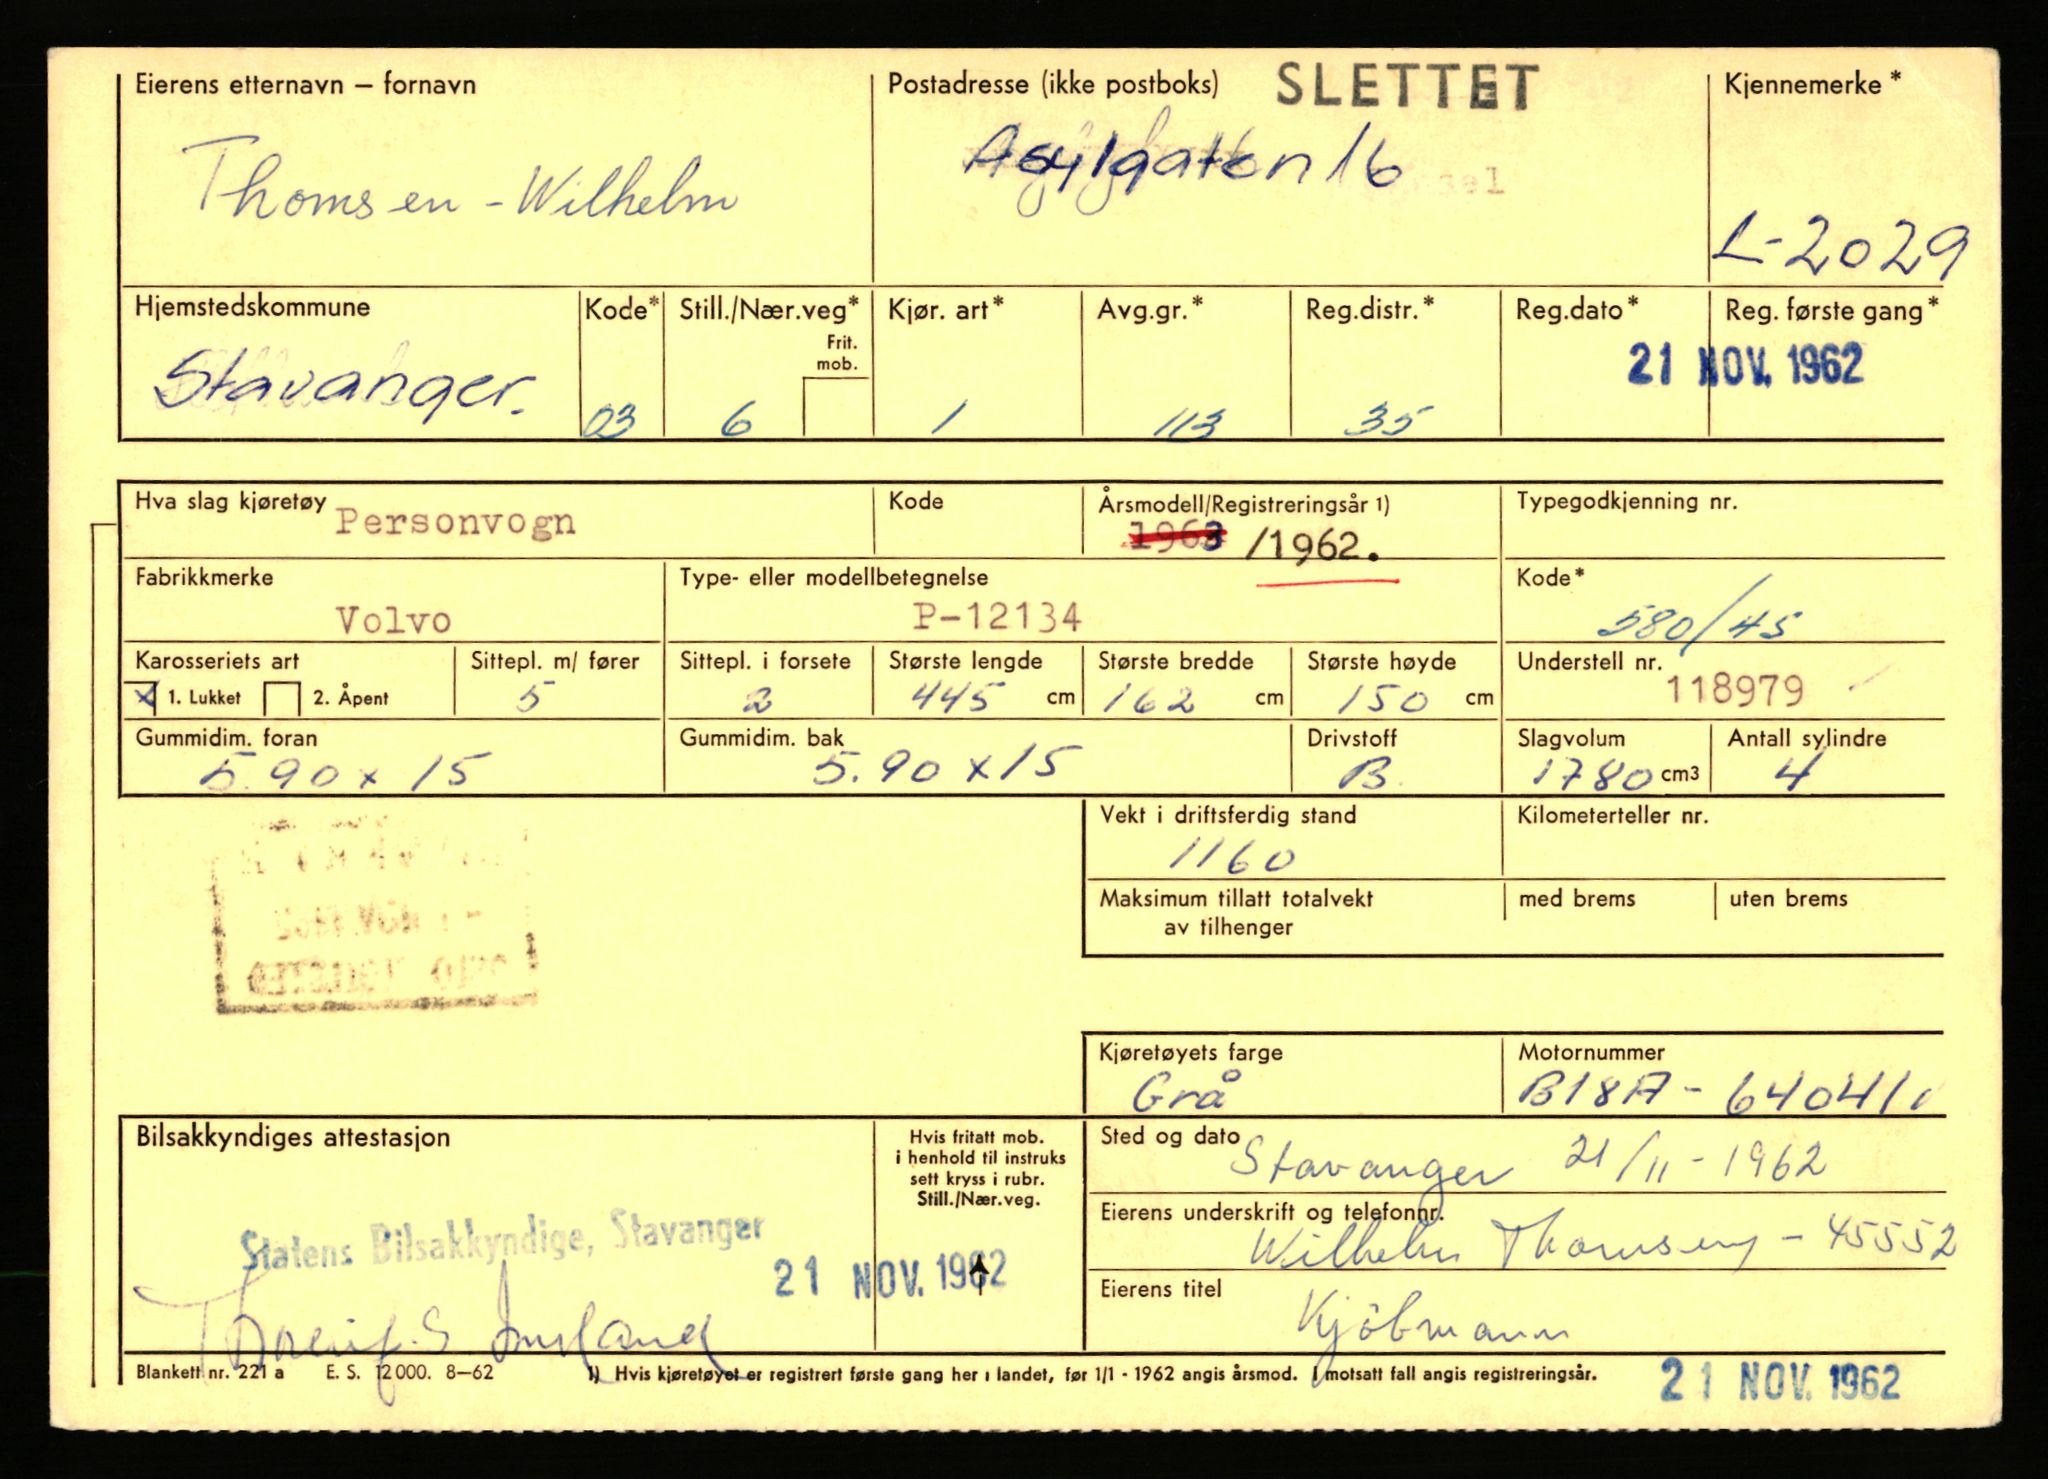 Eierens etternavn – fornavn
Thomsen - Wilhelm
Postadresse (ikke postboks)
SLETTET
Asylgaten 16
Kjennemerke*
L-2029
Hjemstedskommune
Stavanger.
Kode*
03
Still./Nær.veg*
Frit.
mob.
6
Kjør. art*
1
Avg.gr.*
113
Reg.distr.*
35
Reg.dato*
Reg. første gang*
21 NOV. 1962
Hva slag kjøretøy
Personvogn
Kode
Årsmodell/Registreringsår 1)
1963 /1962.
Typegodkjenning nr.
Fabrikkmerke
Volvo
Type- eller modellbetegnelse
P-12134
Kode*
580/45
Karosseriets art
x 1. Lukket 2. Åpent
Sittepl. m/ fører
5
Sittepl. i forsete
2
Største lengde
445 cm
Største bredde
162 cm
Største høyde
150 cm
Understell nr.
118979
Gummidim. foran
5.90 x 15
Gummidim. bak
5.90 x 15
Drivstoff
B
Slagvolum
1780 cm3
Antall sylindre
4
Vekt i driftsferdig stand
1160
Kilometerteller nr.
Maksimum tillatt totalvekt
av tilhenger
med brems
uten brems
Kjøretøyets farge
Grå
Motornummer
B18A - 64041
Bilsakkyndiges attestasjon
Statens Bilsakkyndige, Stavanger
21 NOV. 1962
Hvis fritatt mob.
i henhold til instruks
sett kryss i rubr.
Still./Nær.veg.
Sted og dato
Stavanger 21/11-1962
Eierens underskrift og telefonnr.
Wilhelm Thomsen - 45552
Eierens titel
Kjöbmann
Blankett nr. 221 a E. S. 12 000. 8–62
1) Hvis kjøretøyet er registrert første gang her i landet, før 1/1 - 1962 angis årsmod. I motsatt fall angis registreringsår.
21 NOV. 1962